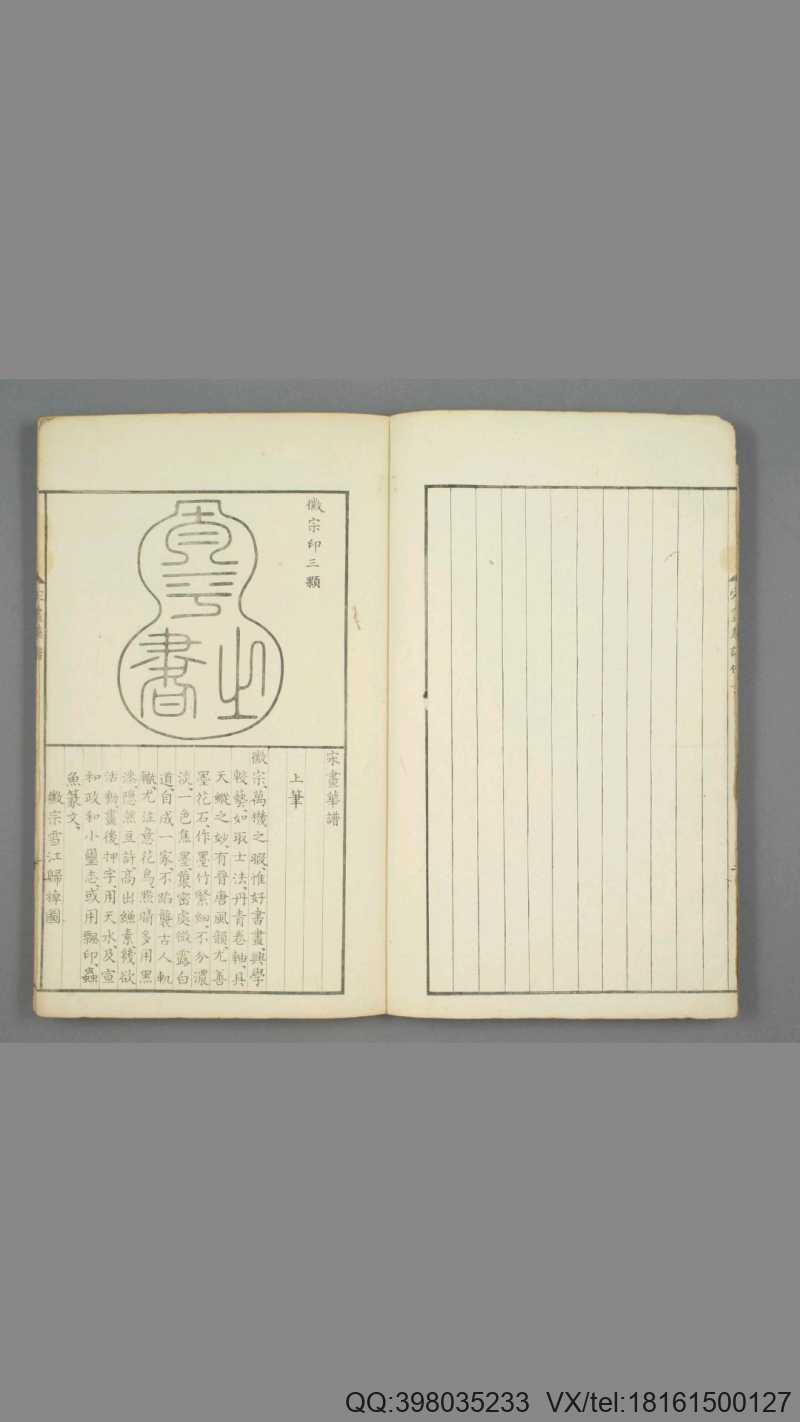 徽宗印三顆
宋畫華譜
上筆
徽宗、萬機之暇、惟好書畫、興學
較藝、如取士法、丹青卷軸、具
天縱之妙、有晉唐風韻、尤善
墨花石、作墨竹緊細、不分濃
淡、一色焦墨、叢密處微露白
道、自成一家、不蹈襲古人軌
轍、尤注意花鳥、點睛多用黑
漆、隱然豆許、高出縑素、幾欲
活動、畫後押字、用天水、及宣
和政和小璽志、或用瓢印、蟲
魚篆文、
徽宗雪江歸棹圖
QQ:398035233 VX/tel:18161500127